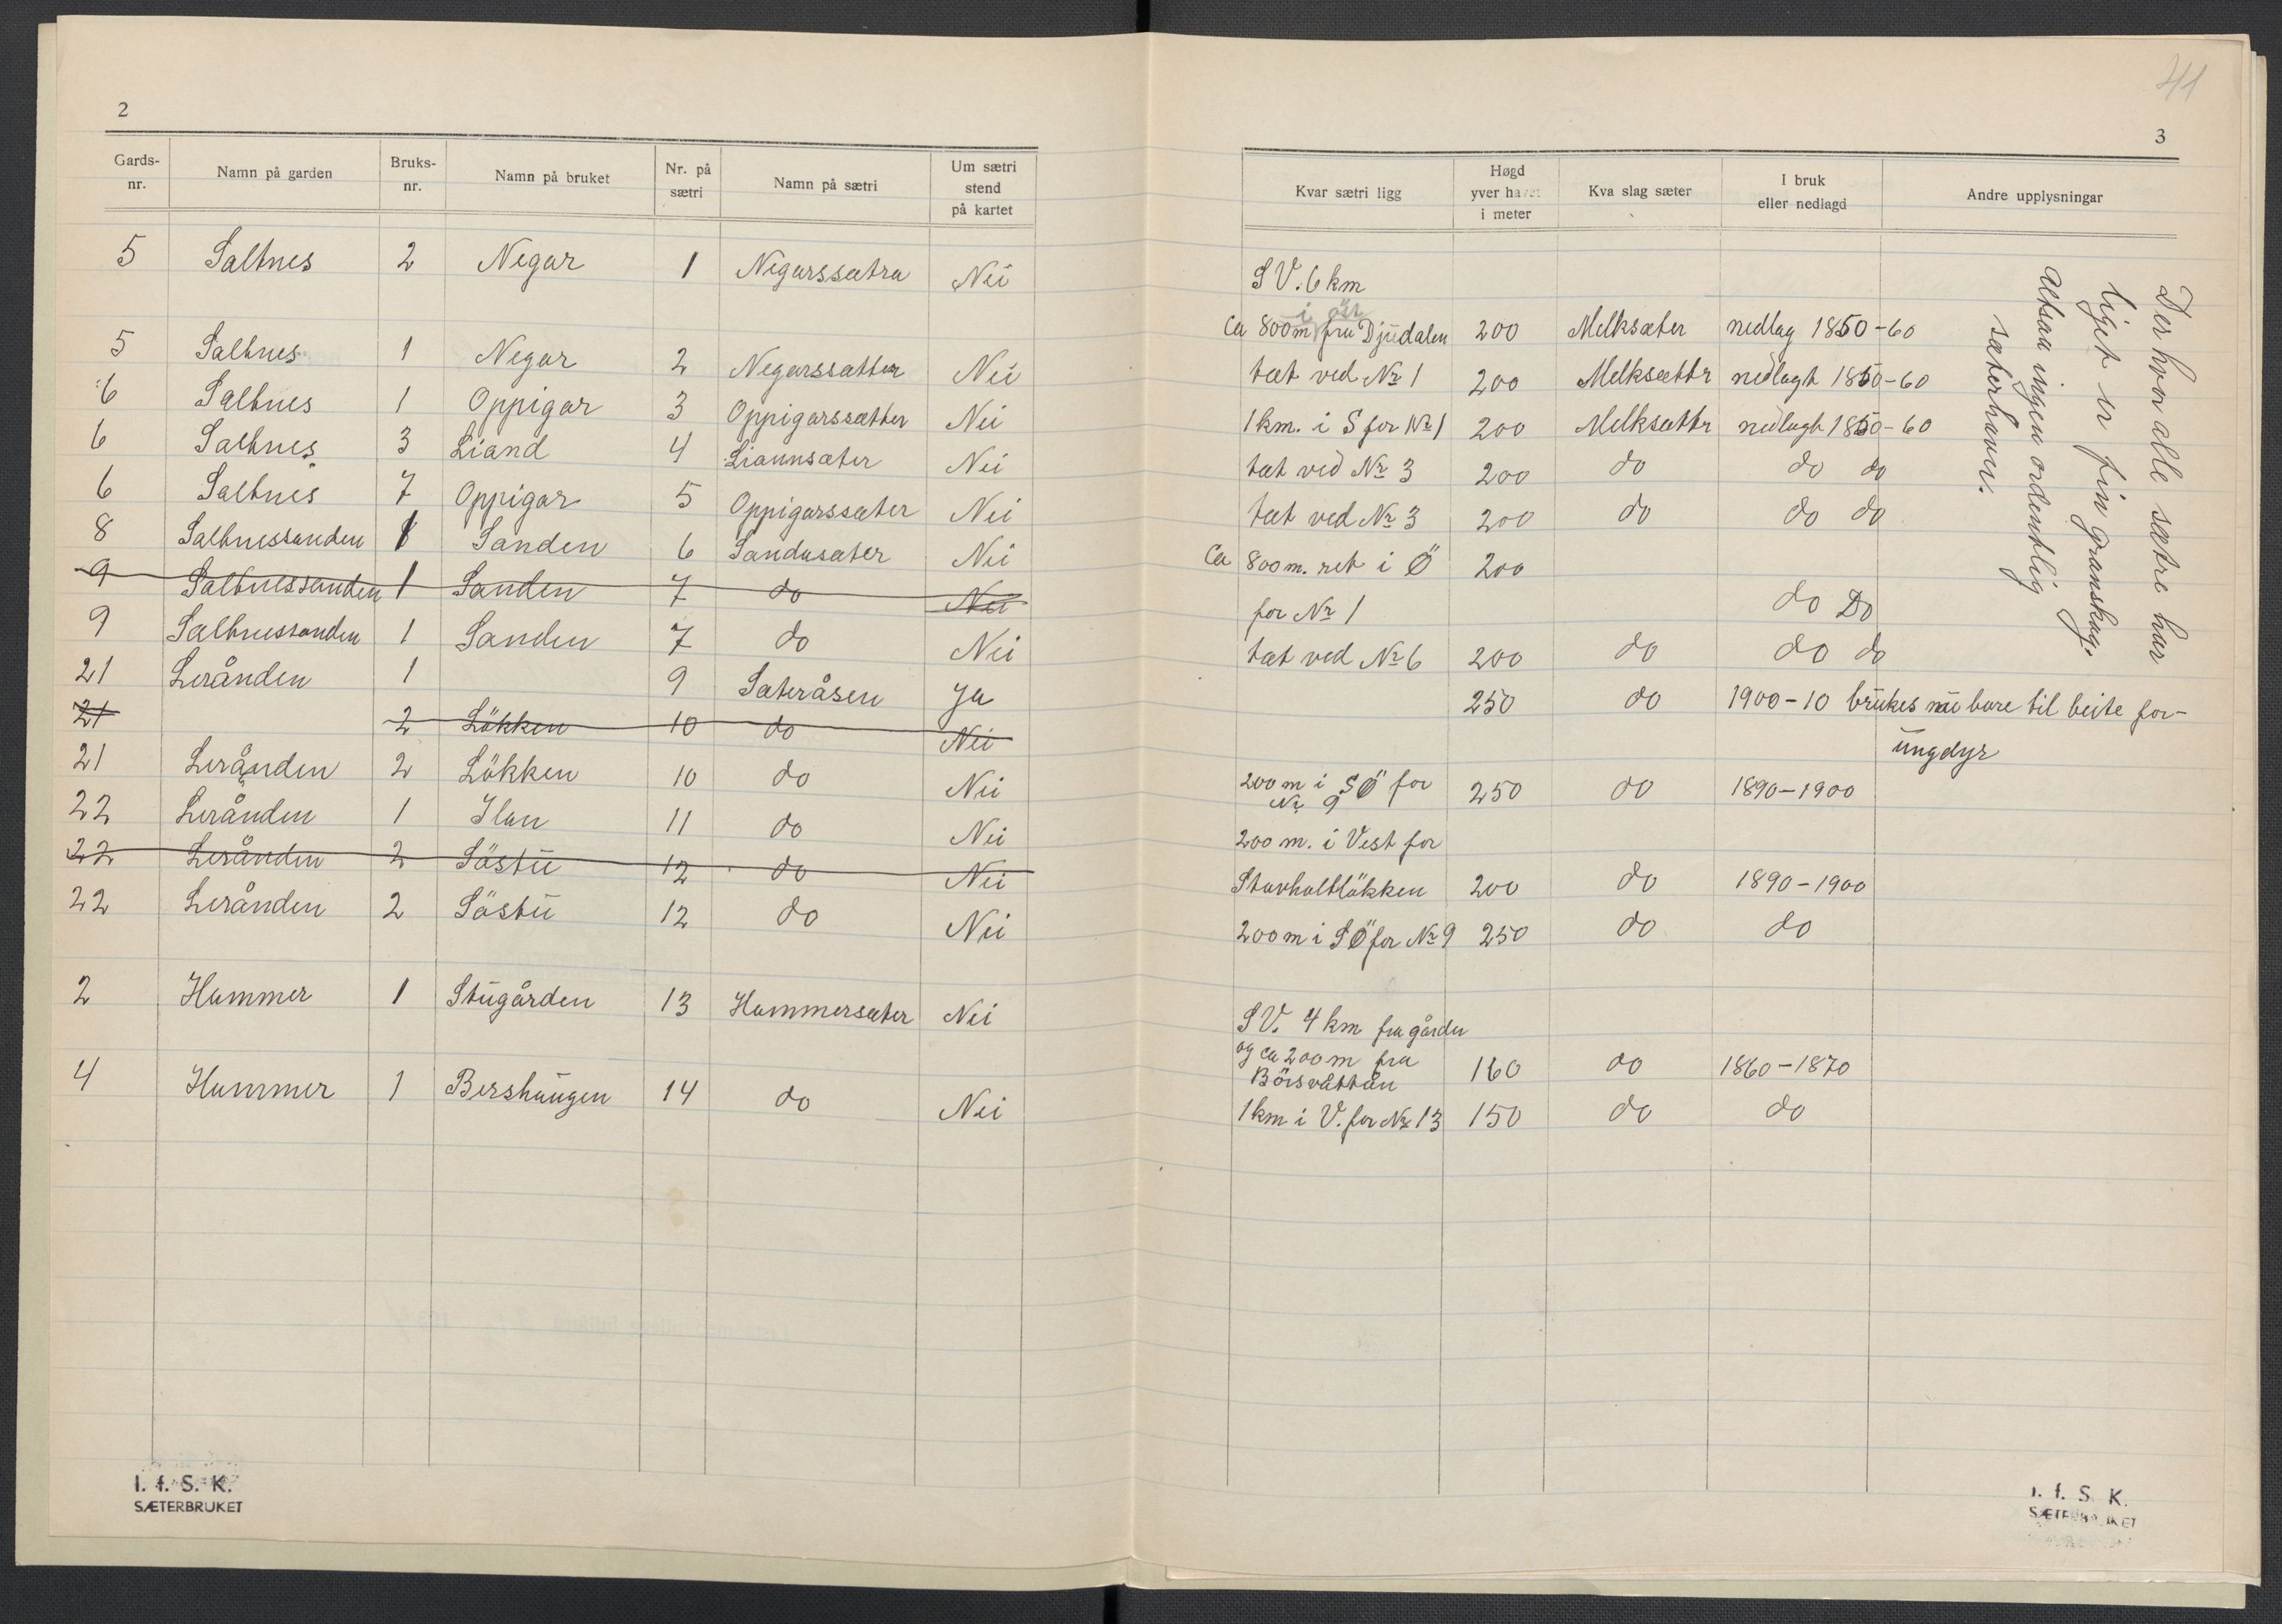 2
Gards-nr. Namn på garden Bruks-nr. Namn på bruket Nr. på sætri Namn på sætri Um sætri stend på kartet
5 Saltnes 2 Negar 1 Negarssætra Nei
5 Saltnes 1 Negar 2 Negarssætter Nei
6 Saltnes 1 Oppigar 3 Oppigarssætter Nei
6 Saltnes 3 Liand 4 Liannsæter Nei
6 Saltnes 7 Oppigar 5 Oppigarssæter Nei
8 Saltnessanden 1 Sanden 6 Sandasæter Nei
9 Saltnessanden 1 Sanden 7 do Nei
9 Saltnessanden 1 Sanden 7 do Nei
21 Lerånden 1 9 Sæteråsen Ja
21 2 Lökken 10 do Nei
21 Lerånden 2 Lökken 10 do Nei
22 Lerånden 1 Ilan 11 do Nei
22 Lerånden 2 Söstu 12 do Nei
22 Lerånden 2 Söstu 12 do Nei
2 Hammer 1 Stugården 13 Hammersæter Nei
4 Hammer 1 Bershaugen 14 do Nei
I. f. S. K.
SÆTERBRUKET
41
3
Kvar sætri ligg Høgd yver havet i meter Kva slag sæter I bruk eller nedlagd Andre upplysningar
SV. 6 km
i öst
Ca 800m fra Djudalen 200 Melksæter nedlag 1850-60
tæt ved Nr 1 200 Melksætter nedlagt 1850-60
1km. i S for Nr 1 200 Melksætter nedlagt 1850-60
tæt ved Nr 3 200 do do do
tæt ved Nr 3 200 do do do
Ca 800m. ret i Ö 200
for Nr 1 do Do
tæt ved Nr 6 200 do do do
250 do 1900-10 brukes nu bare til beite for-
ungdyr
200m i SÖ for
Nr 9 250 do 1890-1900
200 m. i Vest for
Storholtlökken 200 do 1890-1900
200m i SÖ for Nr 9 250 do do
SV. 4 km fra gården
og ca 200m fra
Börsvattån 160 do 1860-1870
1km i V. for Nr 13 150 do do
Der hvor alle sætre har
ligget er fin granskog.
Altsaa ingen ordentlig
sæterhavn.
I. f. S. K.
SÆTERBRUKET